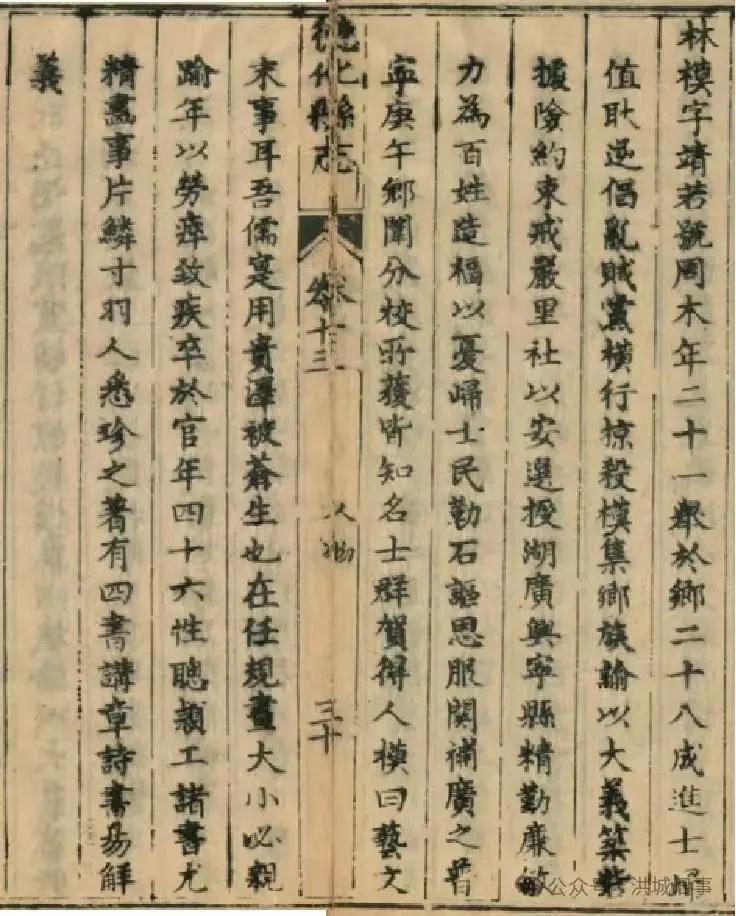 林模字靖若號木年二十一舉於鄉二十八成進士歸
值耿逆倡亂賊黨橫行掠殺模集鄉族諭以大義築砦
據險約束戒嚴里社以安選授湖廣興寧縣精勤廉敏
力為百姓造福以憂歸士民勒石謳思服闋補廣之普
寧庚午鄉闈分校所獲皆知名士群賀得人模曰藝文
德化縣志 卷十三 人物 三十
末事耳吾儒寔用貴澤被蒼生也在任規畫大小必親
踰年以勞瘁致疾卒於官年四十六性聰穎工諸書尤
精畫事片鱗寸羽人悉珍之著有四書講章詩書易解
義
公众号 洪城事